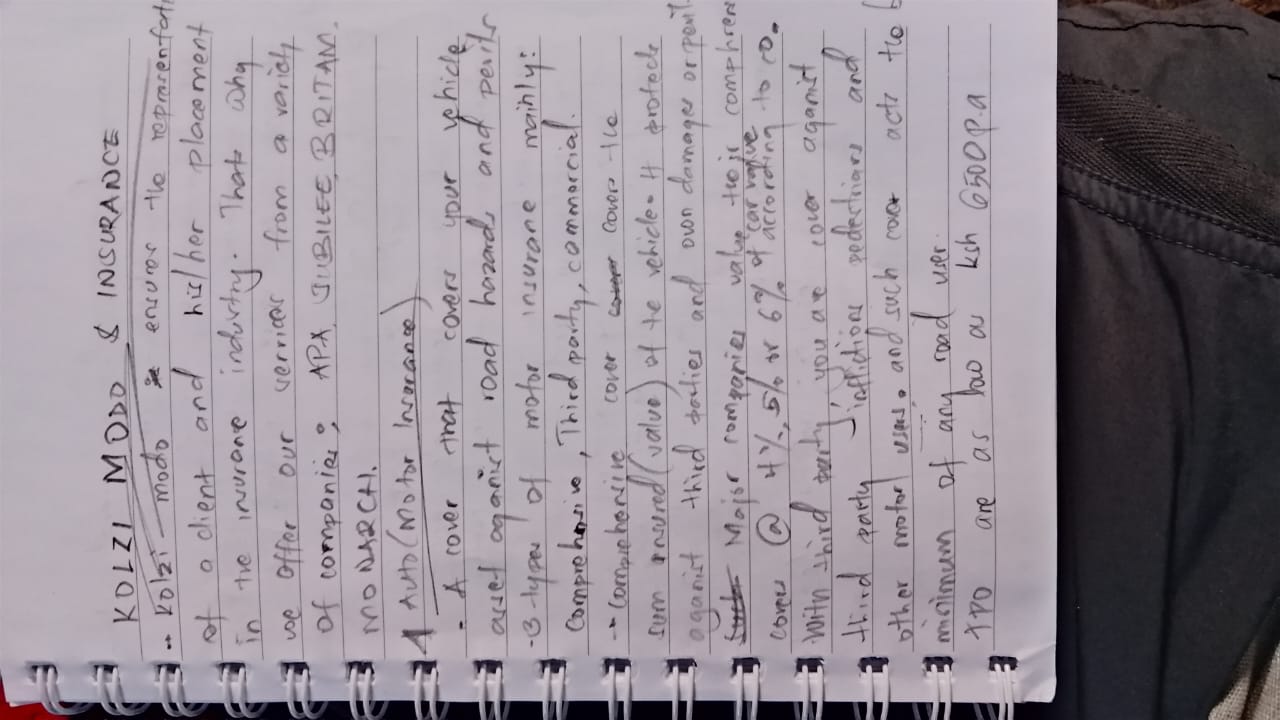 KOLZI MODO & INSURANCE
Kolzi - modo ensures the representati
of a client and his/her placement
in the insurane industry. Thats why
we offer our services from a variety
of companies; APA, JUBILEE, BRITAM,
MONARCH.
1 Auto (Motor Insurance)
- A cover that covers your vehicle
asset aganist road hazards and perils
-3 types of motor insurane mainly:
Comprehensive, Third party, commercial.
- Comprehensive cover covers the
sum ensured (value) of te vehicle. It protects
aganist third parties and own damages or peril
Major companies value their comphren
covers @ 4%, 5% or 6% of car value according to co.
With third party, you are cover aganist
third party inflictions pedestrians and
other motor users. and such cover acts the b
minimum of any road user.
TPO are as low as ksh 6500 p.a